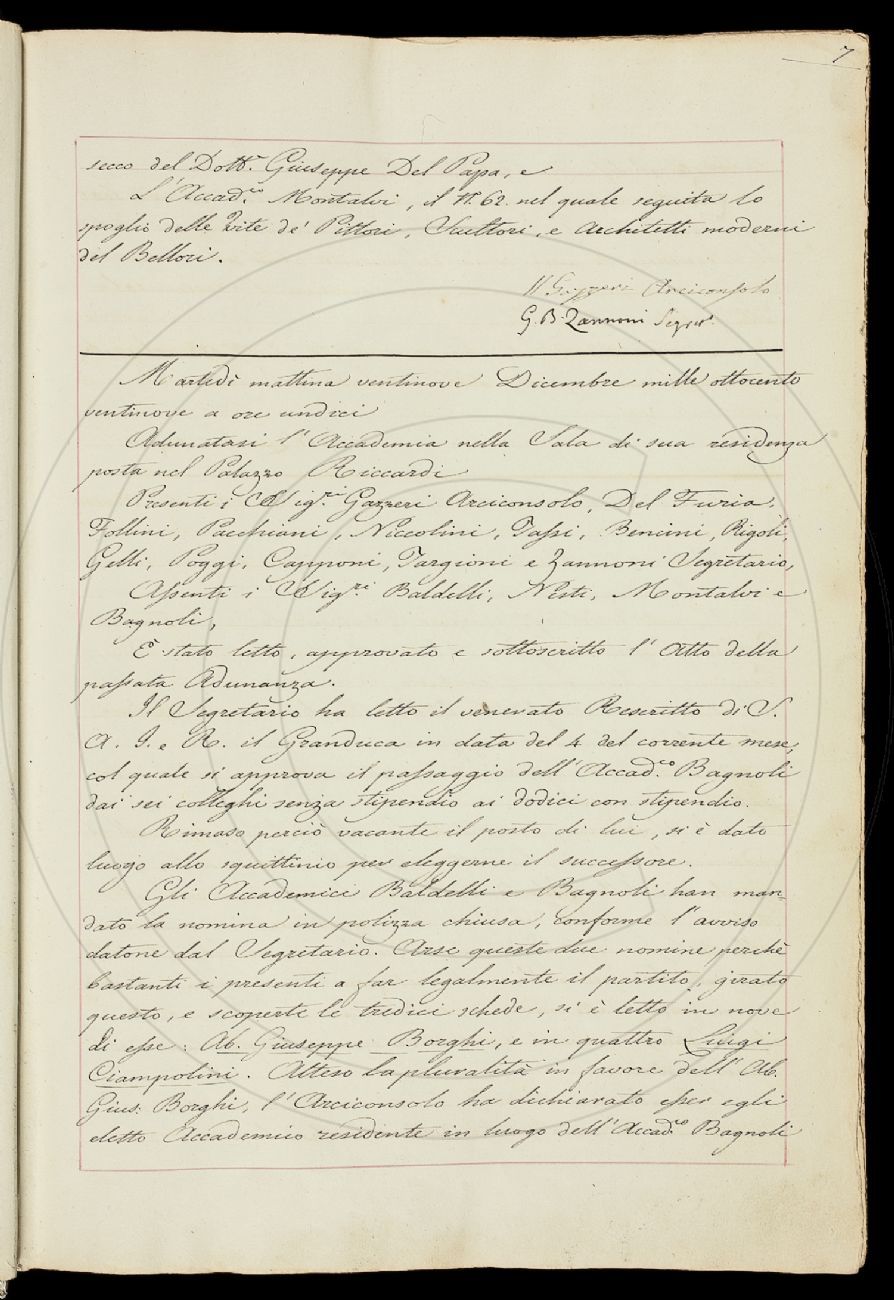 7
secco del Dott.r Giuseppe Del Papa, e
L'Accad.co Montalvi, il N. 62. nel quale seguita lo
spoglio delle Vite de' Pittori, Scultori, e Architetti moderni
del Bellori.
Gazzeri Arciconsolo
G. B. Zannoni Segret.
Martedì mattina ventinove Dicembre mille ottocento
ventinove a ore undici
Adunatasi l'Accademia nella Sala di sua residenza
posta nel Palazzo Riccardi
Presenti i Sigri. Gazzeri Arciconsolo, Del Furia,
Follini, Pacchiani, Niccolini, Tassi, Bencini, Rigoli,
Gelli, Poggi, Capponi, Targioni e Zannoni Segretario,
Assenti i Sigri. Baldelli, Nesti, Montalvi e
Bagnoli,
È stato letto, approvato e sottoscritto l'Atto della
passata Adunanza.
Il Segretario ha letto il venerato Rescritto di S.
A. I. e R. il Granduca in data del 4 del corrente mese,
col quale si approva il passaggio dell'Accad.co Bagnoli
dai sei colleghi senza stipendio ai dodici con stipendio.
Rimaso perciò vacante il posto di lui, si è dato
luogo allo squittinio per eleggerne il successore.
Gli Accademici Baldelli e Bagnoli han man-
dato la nomina in polizza chiusa, conforme l'avviso
datone dal Segretario. Arse queste due nomine perchè
bastanti i presenti a far legalmente il partito, girato
questo, e scoperte le tredici schede, si è letto in nove
di esse: Ab. Giuseppe Borghi, e in quattro Luigi
Ciampolini. Atteso la pluralità in favore dell'Ab.
Gius. Borghi, l'Arciconsolo ha dichiarato esser egli
eletto Accademico residente in luogo dell'Accad.co Bagnoli